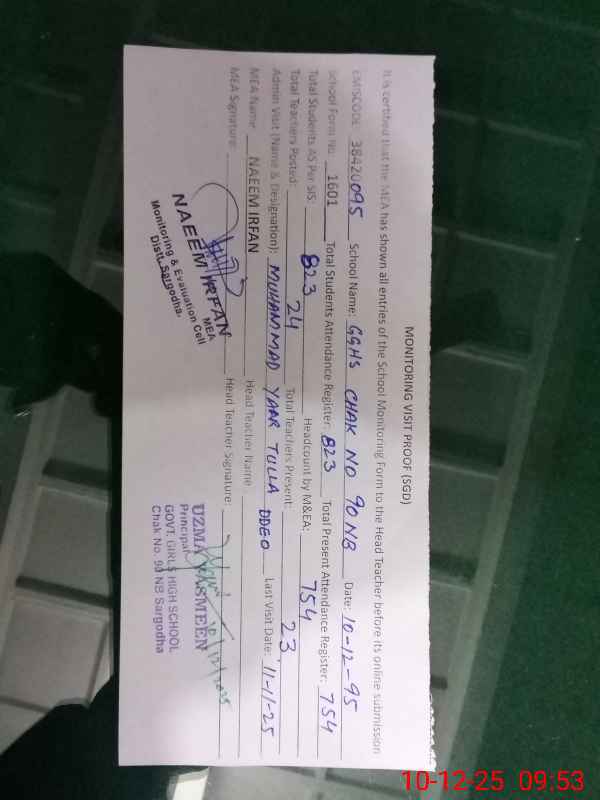 MONITORING VISIT PROOF (SGD)
It is certified that the MEA has shown all entries of the School Monitoring Form to the Head Teacher before its online submission
EMISCODE 38420095 School Name: GGHS CHAK NO 90NB Date: 10-12-95
School Form No 1601 Total Students Attendance Register: 823 Total Present Attendance Register: 754
Total Students AS Per SIS: 823 Headcount by M&EA: 754
Total Teachers Posted: 24 Total Teachers Present: 23
Admin Visit (Name & Designation): MUHAMMAD YAAR TULLA DDEO Last Visit Date: 11-11-25
MEA Name NAEEM IRFAN Head Teacher Name
MEA Signature: Head Teacher Signature:
NAEEM IRFAN
MEA
Monitoring & Evaluation Cell
Distt. Sargodha.
10/12/2025
UZMA YASMEEN
Principal
GOVT. GIRLS HIGH SCHOOL
Chak No. 90 NB Sargodha
10-12-25 09:53